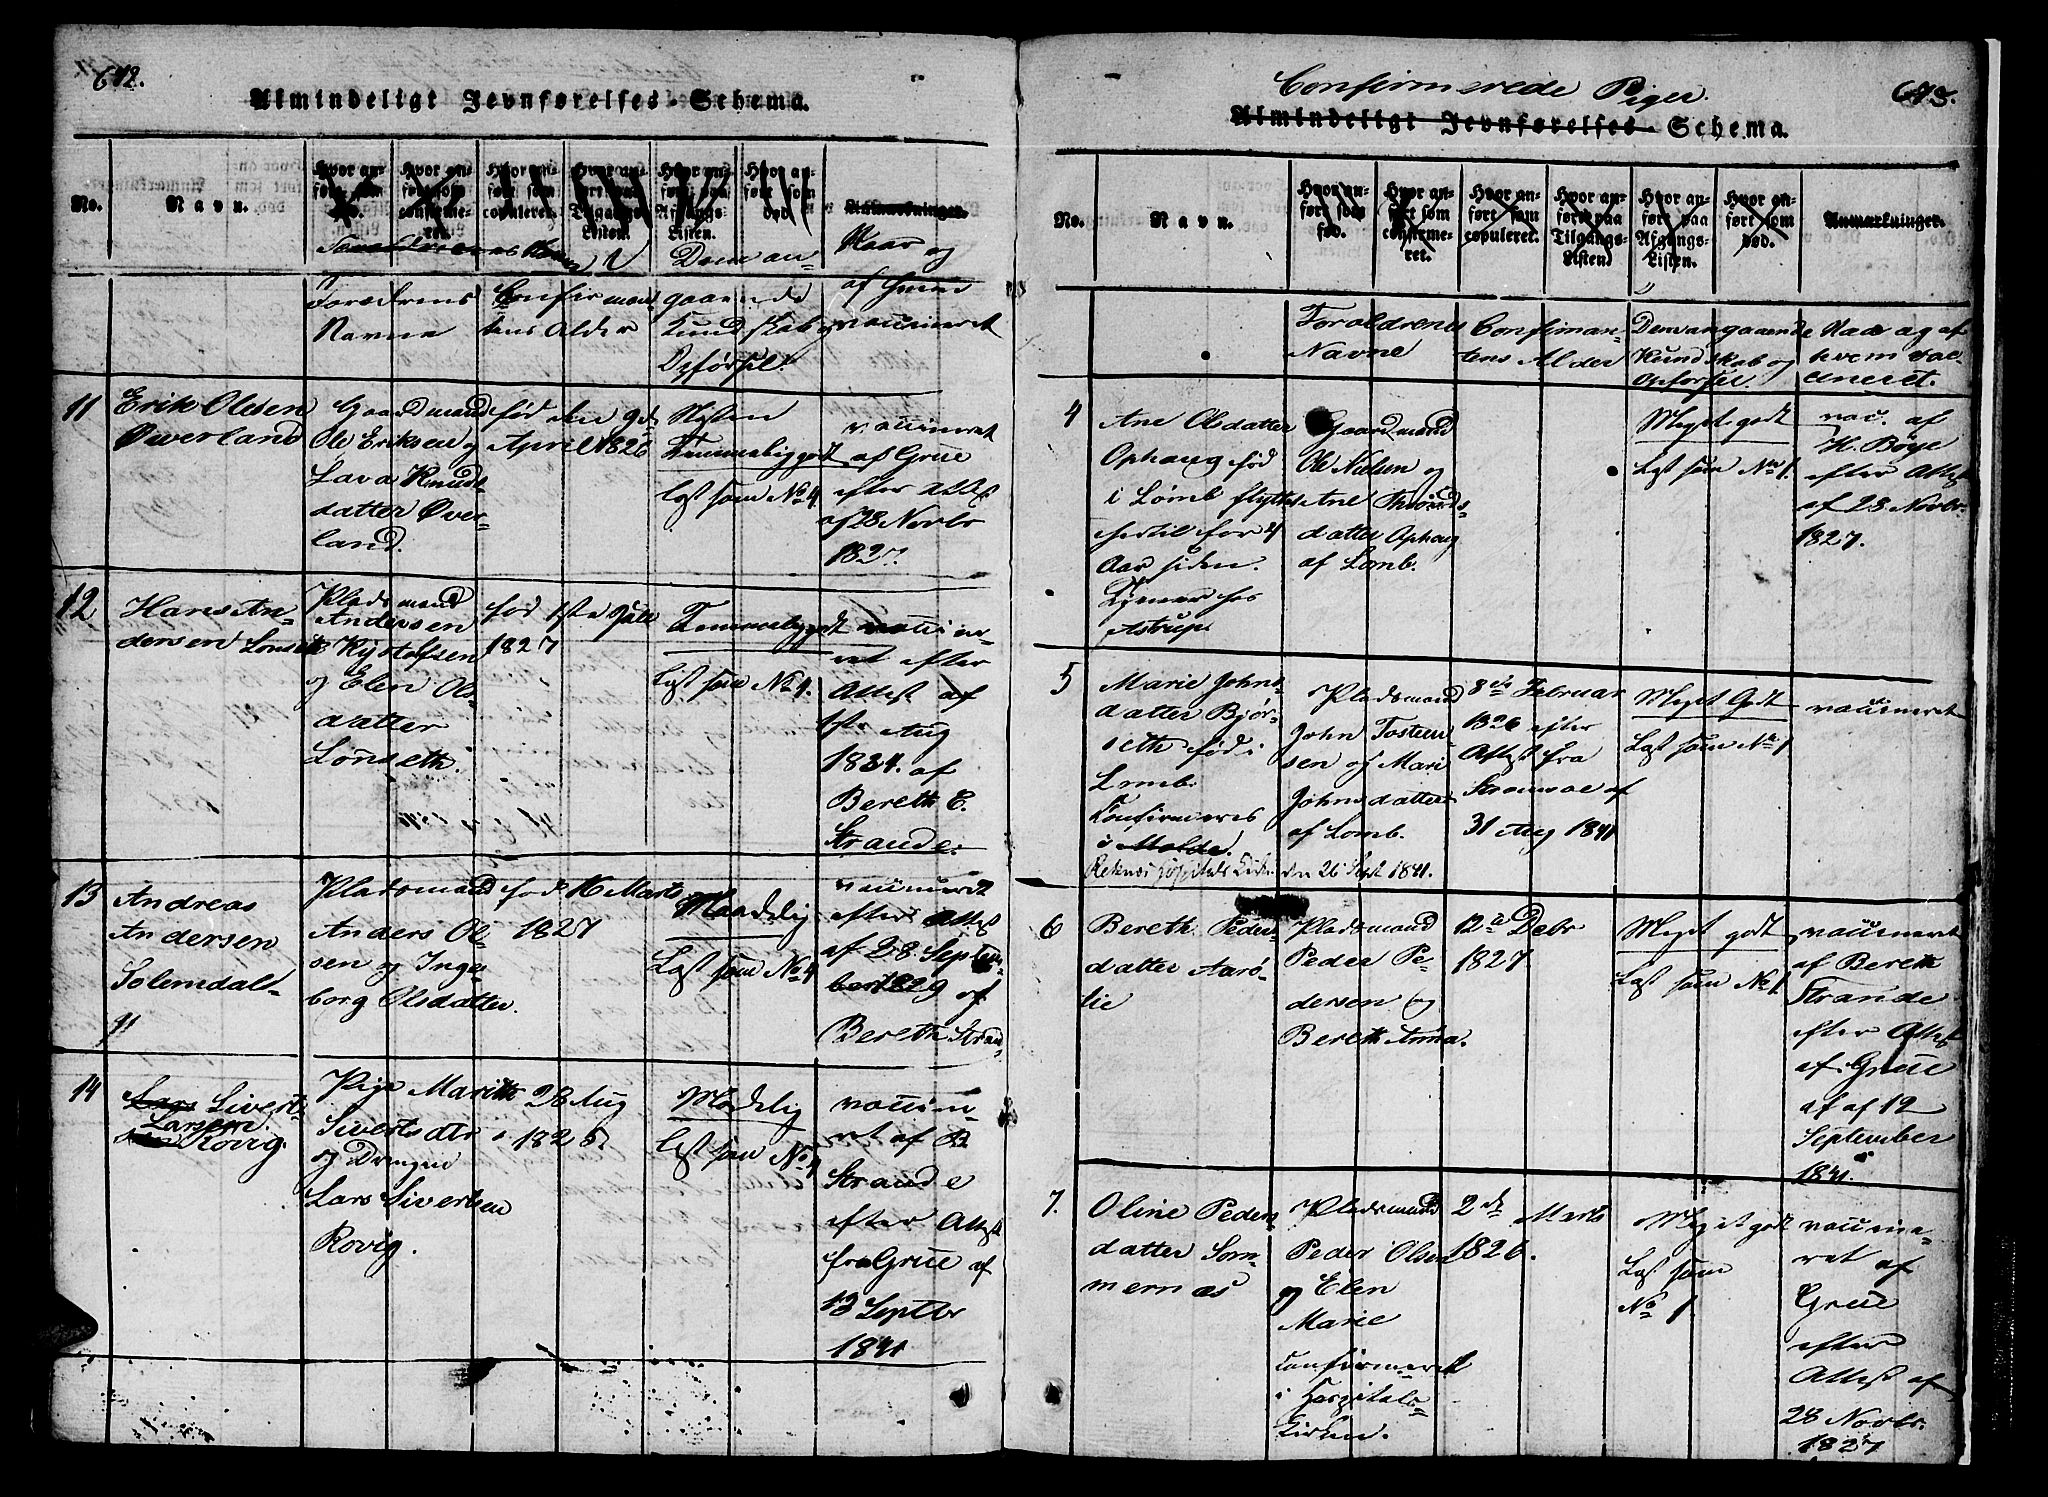 642.
Almindeligt Jevnførelses-Schema.
No.
Navn.
Hvor anført som fød.
Hvor anført som confirmeret.
Hvor anført som copuleret.
Hvor anført paa Tilgangs-Listen.
Hvor anført paa Afgangs-Listen.
Hvor anført som død.
Anmærkninger.
Forældrenes Navne
Confirmandens Alder
Dom angaaende Kundskab og Opførsel.
Naar og af hvem vaccineret
11
Erik Olsen
Øverland
Gaardmand
Ole Eriksen og
Lava Knuds-
datter Øver-
land.
fød den 9de
April 1826
Næsten
Temmelig godt
Læst som No 4
vaccineret
af Grüe
efter Attest
af 28 Novbr
1827.
12
Hans An-
dersen Lønseth
Pladsmand
Andersen
Kystofsen
og Elen Ols-
datter
Lønseth.
fød 1ste Juli
1827
Temmelig godt
Læst som No 4.
vaccine-
ret efter
Attest af
1ste Aug
1834. af
Bereth E.
Strande.
13
Andreas
Andersen
Solemdal-
Pladsmand
Anders Ol-
sen og Inge-
borg Olsdatter.
fød 16 Marts
1827
Maadelig
Læst som No 4
vaccineret
efter Attest
af 28. Septem-
ber 1829 af
Bereth Stran-
14
Lars Sivert
Larsen
Rovig.
Pige Marith
Sivertsdtr
og Drengen
Lars Sivertsen
Rovig.
28 Aug
1825
Mådelig
Læst som No 4
vaccine-
ret af B
Strande
efter Attest
fra Grüe af
13 Septbr
1841
643.
Confirmerede Piger.
Almindeligt Jevnførelses-Schema.
No.
Navn.
Hvor anført som fød.
Hvor anført som confirmeret.
Hvor anført som copuleret.
Hvor anført paa Tilgangs-Listen
Hvor anført paa Afgangs-Listen.
Hvor anført som død.
Anmærkninger.
Forældrenes
Navne
Confirman-
tens Alder
Dom angaaende
Kundskab og
Opførsel
Naar og af
hvem vac-
cineret.
4
Ane Olsdatter
Ophaug fød
i Lømb flyttet
hertil for 4
Aar siden.
Tjener hos
Astrup.
Gaardmand
Ole Nielsen og
Ane
datter Ophaug
af Lomb.
Meget godt
Læst som No 1.
vac. af
H. Böye
efter Attest
af 28 Novbr.
1827.
5
Marie Johns-
datter Bjør-
seth fød i
Lomb.
Confirmeres
i Molde.
Reknes Hospitals Kirke den 26 Sept 1841.
Pladsmand
John Tosten-
sen og Mari
Johnsdatter
af Lomb.
8de Februar
1826 efter
Attest fra
af
31 Aug 1841
Meget Godt
Læst som No 1
vaccineret
6
Bereth Peders-
datter Aarø-
lie
Pladsmand
Peder Pe-
dersen og
Bereth Anna.
12 Debr
1827
Meget godt
Læst som No 1.
vaccineret
af Bereth
Strande
efter Attest
af Grüe
af af 12
September
1841.
7.
Oline Peders-
datter Som-
mernæs
Pladsmand
Peder Olsen
og Elen
Marie
Confirmeret
i Hospitals-
Kirken.
2de Marts
1826.
Meget godt
Læst som
No 1
vaccine-
ret af
Grüe
efter
Attest af
28 Novbr.
1827